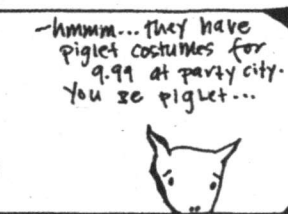 -hmmm... they have
piglet costumes for
9.99 at party city.
you be piglet...